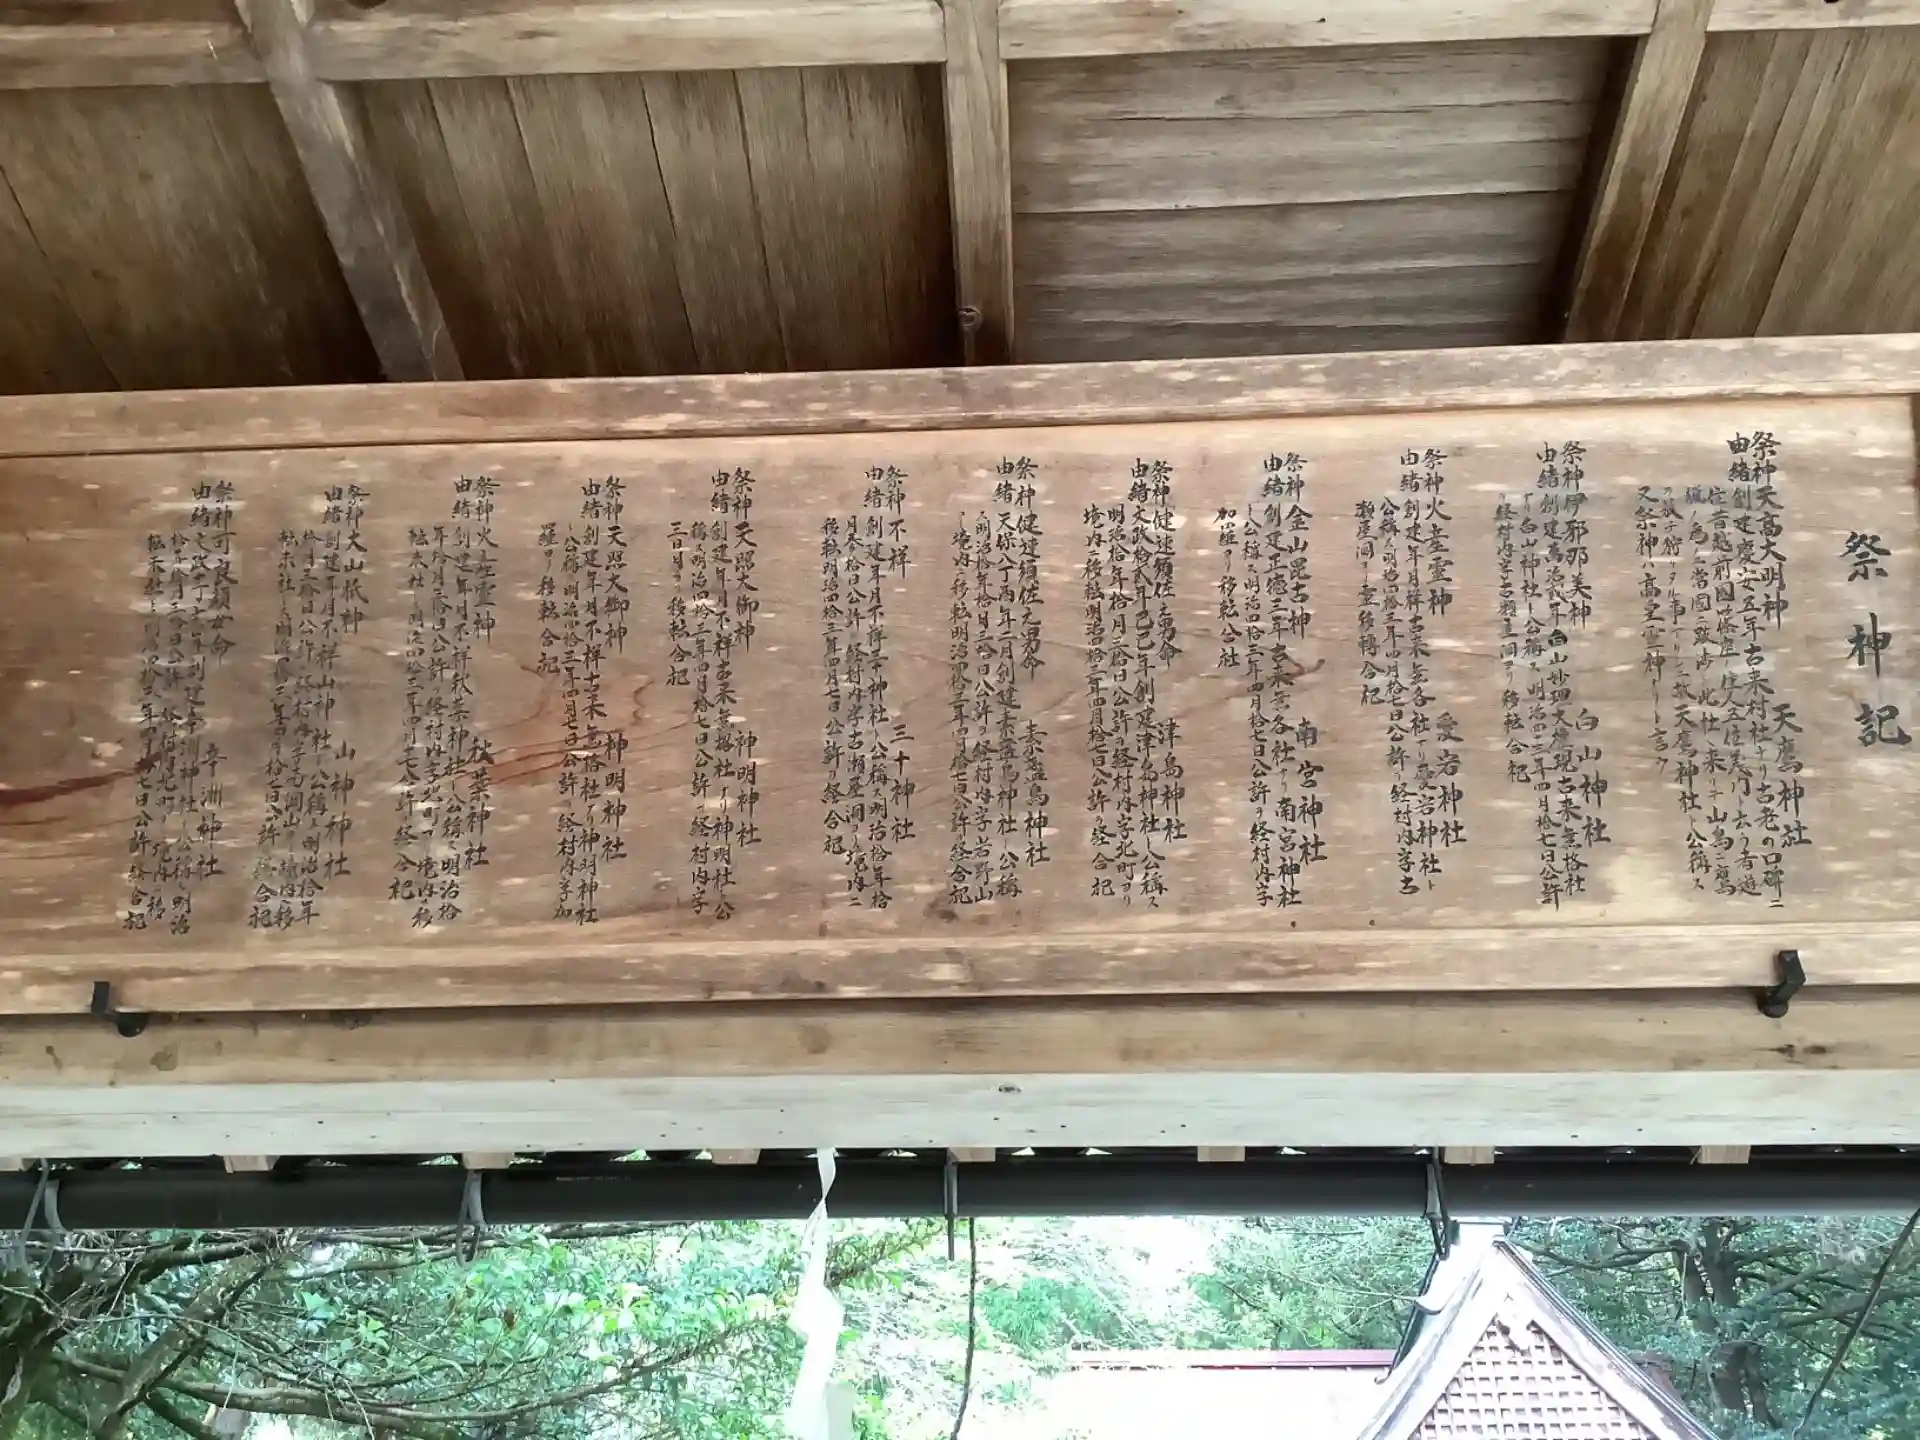 祭神記
天鷹神社
祭神天高大明神
由緒創建慶安五年古来村社ナリ古老の口碑ニ
又祭神ハ高皇霊神ナリト言ウ
白山神社
祭神伊邪那美神
由緒創建萬治弐年白山妙理大権現古来無格社
ナリ白山神社ト公稱ス明治四三年四月拾七日公許
愛宕神社
祭神火産霊神
由緒創建年月不祥古来無各社ナリ愛宕神社ト
公稱ス明治四拾三年四月拾七日公許ヲ経村内字古
瀬屋洞ヨリ
南宮神社
祭神金山毘古神
由緒創建正徳三年古来無各社ナリ南宮神社
ト公稱ス明治四拾三年四月拾七日公許ヲ経村内字
加羅ヨリ移転合社
津島神社
祭神健速須佐之男命
由緒文政拾弐年己巳年創建津島神社ト公稱ス
明治拾年拾月三拾日公許ヲ経村内字北町ヨリ
境内ニ移転明治四拾三年四月拾七日公許ヲ経合祀
素盞嗚神社
祭神健速須佐之男命
由緒天保八丁酉年二月創建素盞嗚神社ト公稱
ス明治拾年拾月三拾日公許ヲ経村内字岩野山
ヨリ境内ニ移転明治四拾三年四月拾七日公許ヲ経合祀
三十神社
祭神不祥
由緒創建年月不祥三十神社ト公稱ス明治拾年拾
月参拾日公許ヲ経村内字古瀬屋洞ヨリ境内ニ
移転明治四拾三年四月七日公許ヲ経合祀
神明神社
祭神天照大御神
由緒創建年月不祥古来無格社ナリ神明社ト公
稱ス明治四拾三年四月拾七日公許ヲ経村内字
三日月ヨリ移転合祀
神明神社
祭神天照大御神
由緒創建年月不祥古来無格社ナリ神明神社
ト公稱明治四拾三年四月七日公許ヲ経村内字加
羅ヨリ移転合祀
秋葉神社
祭神火之産霊神
由緒創建年月不祥秋葉神社ト公稱ス明治拾
年拾月三拾日公許ヲ経村内字北町ヨリ境内ニ移
転末社トス明治四拾三年四月十七公許ヲ経合祀
山神神社
祭神大山祇神
由緒創建年月不祥山神神社ト公稱ス明治拾年
拾月三拾日公許ヲ経村内字 洞山ヨリ境内ニ移
転末社トス明治四拾三年四月拾七日公許ヲ経合祀
辛洲神社
祭神可良須女命
由緒文政十 年創建辛洲神社ト公稱ス明治
拾年拾月三拾日公許ヲ経村内 町ヨリ境内ニ移
転末社トス明治四拾三年四月拾七日公許ヲ経合祀